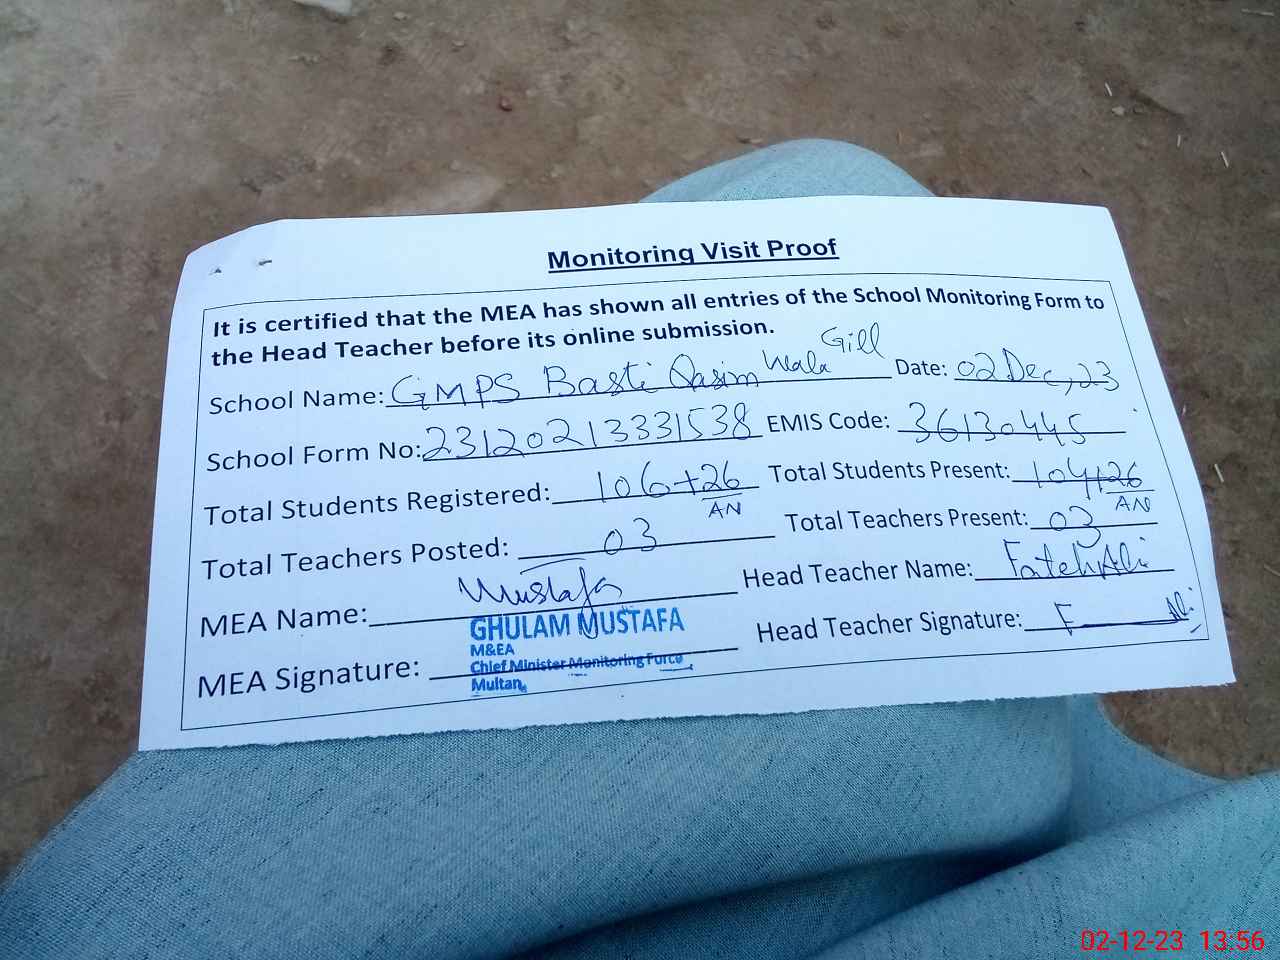 Monitoring Visit Proof
It is certified that the MEA has shown all entries of the School Monitoring Form to
the Head Teacher before its online submission.
School Name: GMPS Basti Qasim Wala Gill Date: 02 Dec, 23
School Form No: 23120213331538 EMIS Code: 36130445
Total Students Registered: 106+26 Total Students Present: 104+26
AN AN
Total Teachers Posted: 03 Total Teachers Present: 03
MEA Name: Mustafa Head Teacher Name: Fateh Ali
GHULAM MUSTAFA
M&EA
Chief Minister Monitoring Force
Multan
MEA Signature: Head Teacher Signature: F Ali
02-12-23 13:56